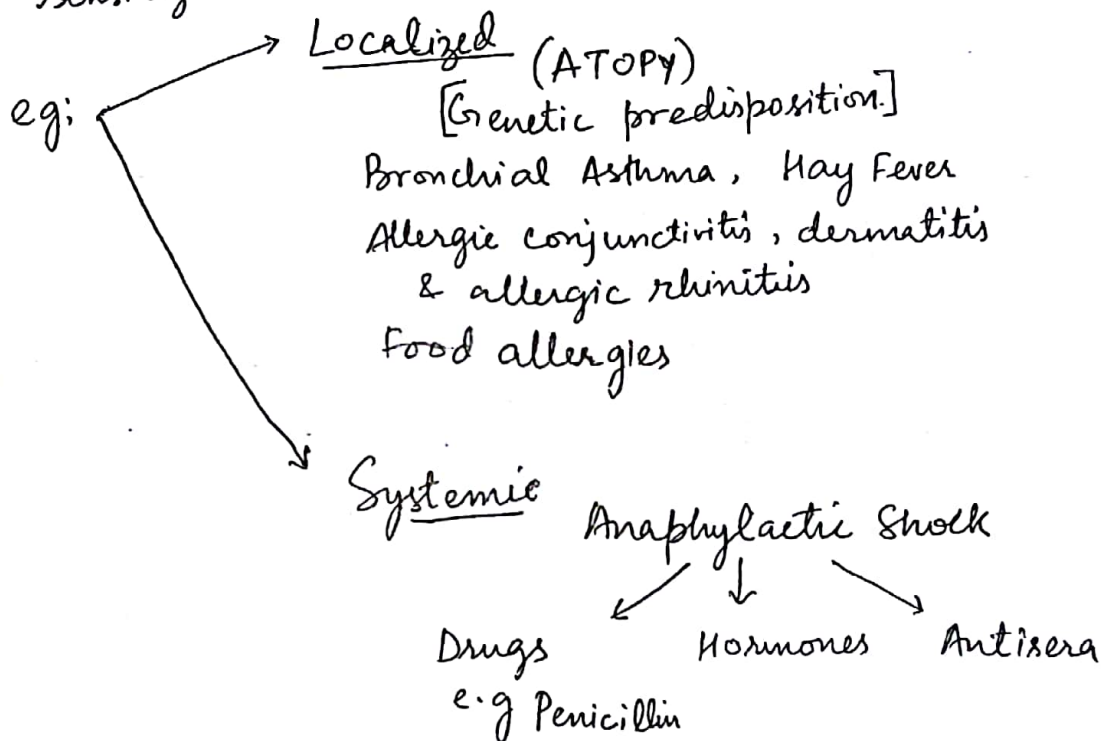 Localized
(ATOPY)
eg:
[Genetic predisposition.]
Bronchial Asthma, Hay Fever
Allergic conjunctivitis, dermatitis
& allergic rhinitis
Food allergies
Systemic
Anaphylactic Shock
Drugs Hormones Antisera
e.g Penicillin